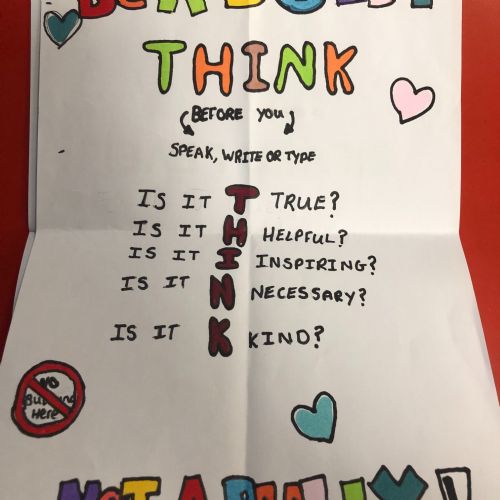 BE A BUDDY
THINK
BEFORE YOU
SPEAK, WRITE OR TYPE
IS IT T TRUE?
IS IT H HELPFUL?
IS IT I INSPIRING?
IS IT N NECESSARY?
IS IT K KIND?
NO
Bullying
Here
NOT A BULLY!